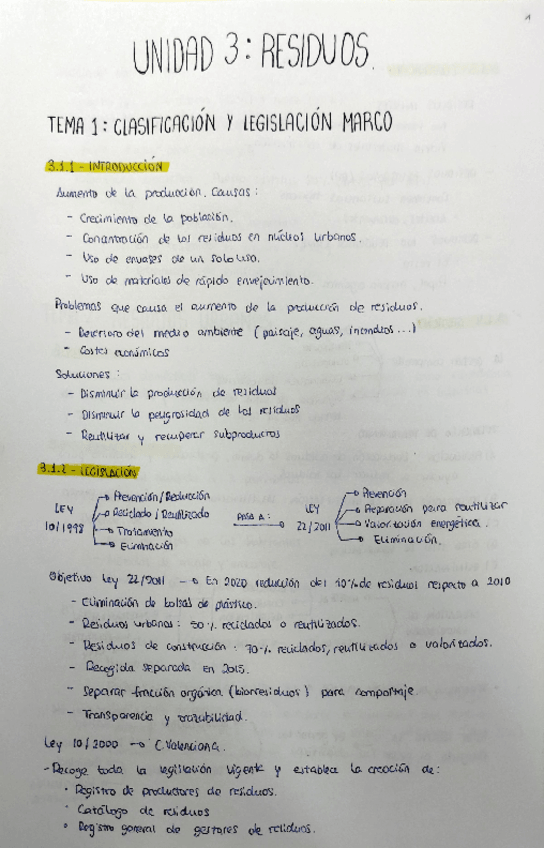 1
UNIDAD 3: RESIDUOS.
TEMA 1: CLASIFICACIÓN Y LEGISLACIÓN MARCO
3.1.1 - INTRODUCCIÓN
Aumento de la producción. Causas:
- Crecimiento de la población.
- Concentración de los residuos en núcleos urbanos.
- Uso de envases de un solo uso.
- Uso de materiales de rápido envejecimiento.
Problemas que causa el aumento de la producción de residuos.
- Deterioro del medio ambiente (paisaje, aguas, incendios...)
- Costes económicos
Soluciones:
- Disminuir la producción de residuos
- Disminuir la peligrosidad de los residuos
- Reutilizar y recuperar subproductos
3.1.2 - LEGISLACIÓN
LEY 10/1998
→ Prevención / Reducción
→ Reciclado / Reutilizado
→ Tratamiento
→ Eliminación
PASA A: →
LEY 22/2011
→ Prevención
→ Preparación para reutilizar
→ Valorización energética.
→ Eliminación.
Objetivo Ley 22/2011 → En 2020 reducción del 10% de residuos respecto a 2010
- Eliminación de bolsas de plástico.
- Residuos urbanos: 50% reciclados o reutilizados.
- Residuos de construcción: 70% reciclados, reutilizados o valorizados.
- Recogida separada en 2015.
- Separar fracción orgánica (biorresiduos) para compostaje.
- Transparencia y trazabilidad.
Ley 10/2000 → C. Valenciana.
- Recoge toda la legislación vigente y establece la creación de:
• Registro de productores de residuos.
• Catálogo de residuos
• Registro general de gestores de residuos.